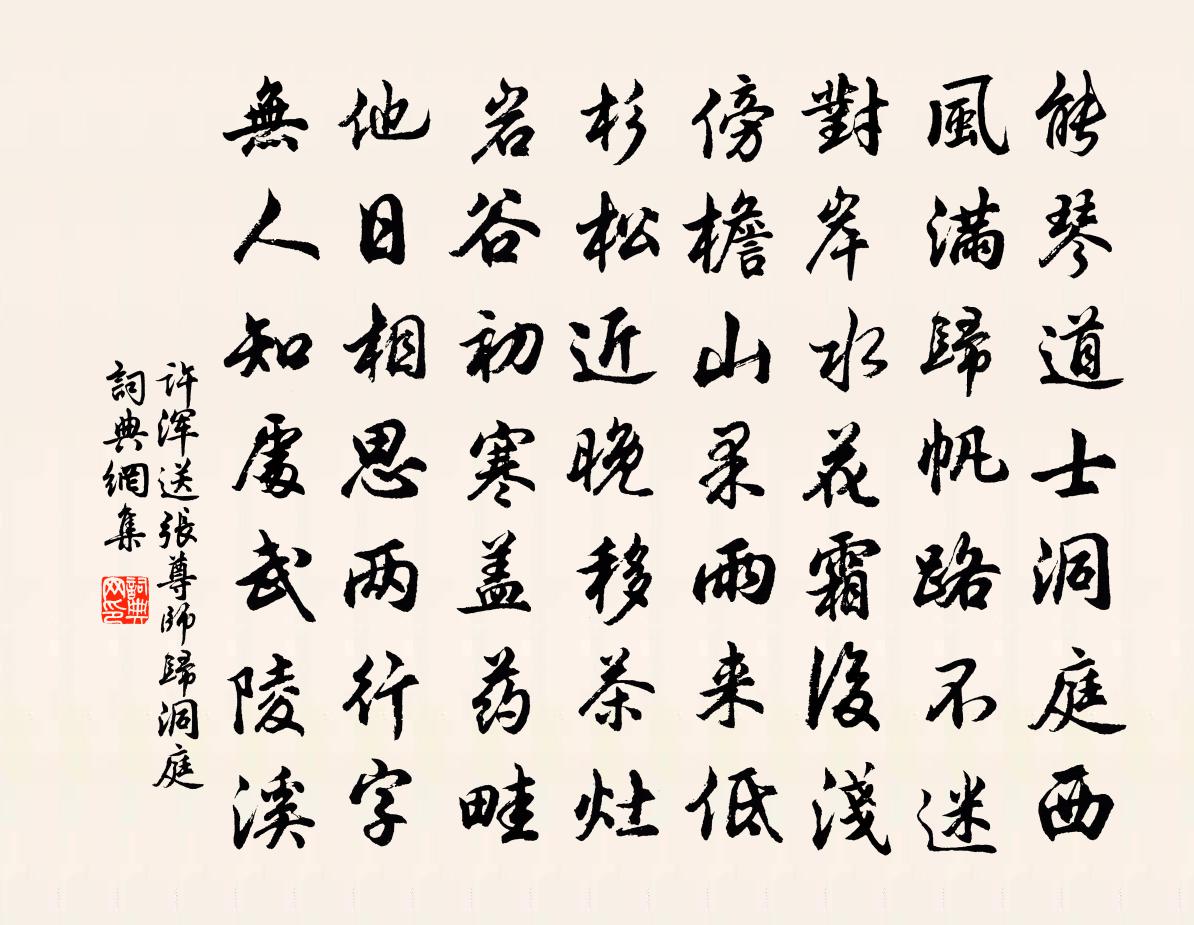 能琴道士洞庭西
風滿歸帆路不迷
對岸水花霜後淺
傍檐山果雨来低
杉松近晚移茶灶
岩谷初寒盖药畦
他日相思两行字
無人知處武陵溪
许浑送張尊師歸洞庭
詞典網集
詞典网印